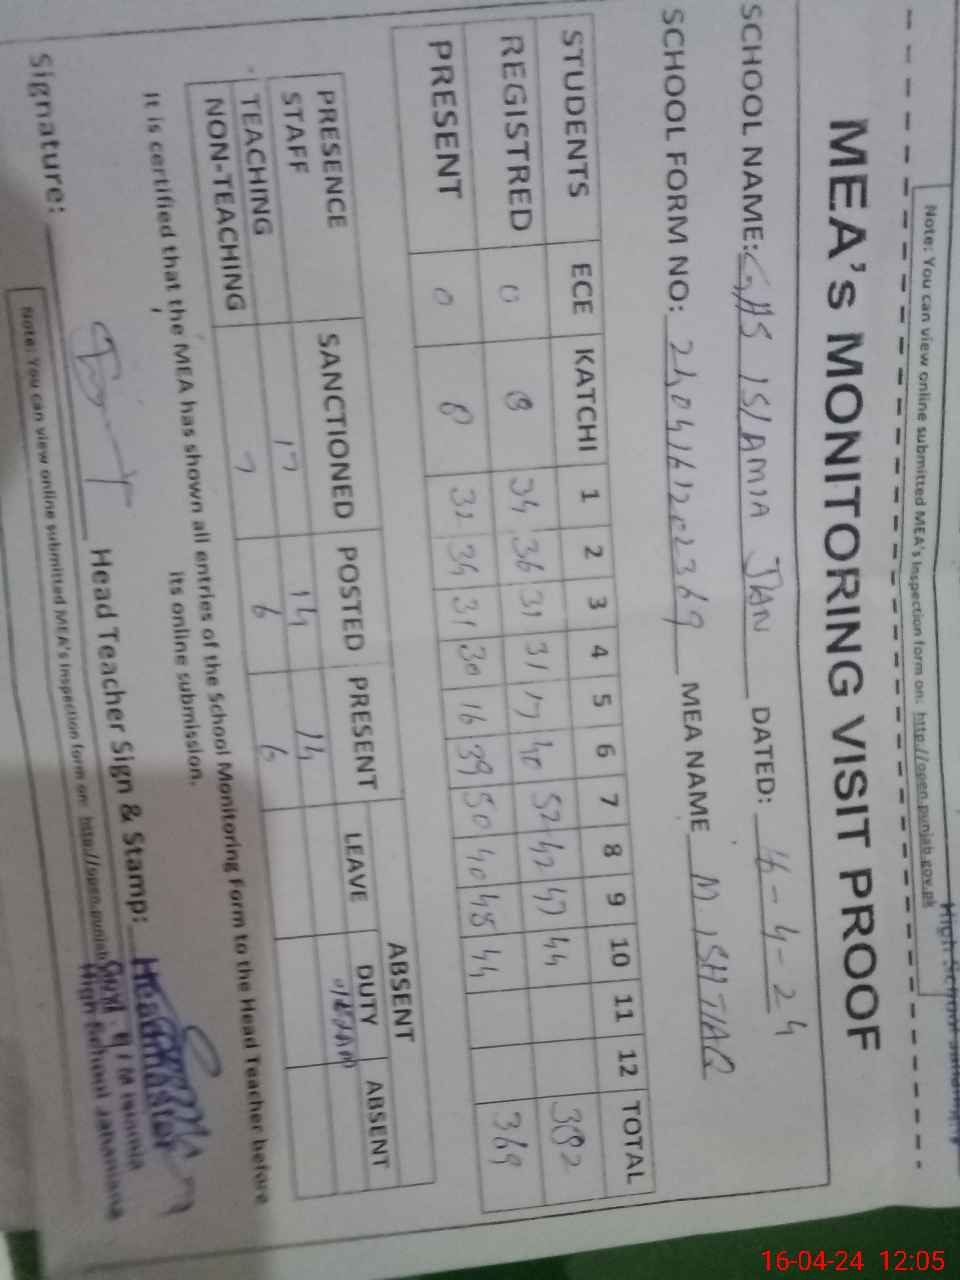 High School Jahanian
Note: You can view online submitted MEA's Inspection form on: http://open.punjab.gov.pk
MEA's MONITORING VISIT PROOF
SCHOOL NAME: GHS ISLAMIA JAN DATED: 16-4-24
SCHOOL FORM NO: MEA NAME M. ISHTIAQ
STUDENTS ECE KATCHI 1 2 3 4 5 6 7 8 9 10 11 12 TOTAL
REGISTRED 0 8 34 36 31 31 17 40 52 42 47 44 382
PRESENT 0 8 32 34 31 30 16 39 50 40 45 44 369
ABSENT
PRESENCE SANCTIONED POSTED PRESENT LEAVE DUTY ABSENT
STAFF
TEACHING 17 14 14
NON-TEACHING 7 6 6
It is certified that the MEA has shown all entries of the School Monitoring Form to the Head Teacher before
its online submission.
Signature: Head Teacher Sign & Stamp: Headmaster
Govt. Islamia
High School Jahanian
Note: You can view online submitted MEA's Inspection form on: http://open.punjab
16-04-24 12:05